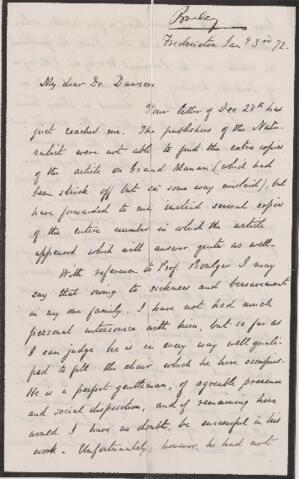 Fredericton Jan 3rd 72.
My dear Dr. Dawson
Your letter of Dec 28th has
just reached me. The publishers of the Natu-
ralist were not able to find the extra copies
of the article on Grand Manan (which had
been struck off but in some way mislaid), but
have forwarded to me instead several copies
of the entire number in which the article
appeared which will answer quite as well.
With reference to Prof. Boulger I may
say that owing to sickness and bereavement
in my own family, I have not had much
personal intercourse with him, but so far as
I can judge he is in every way well quali-
fied to fill the chair which he here occupies.
He is a perfect gentleman, of agreeable presence
and social disposition, and if remaining here
would I have no doubt, be successful in his
work. Unfortunately, however, he had not